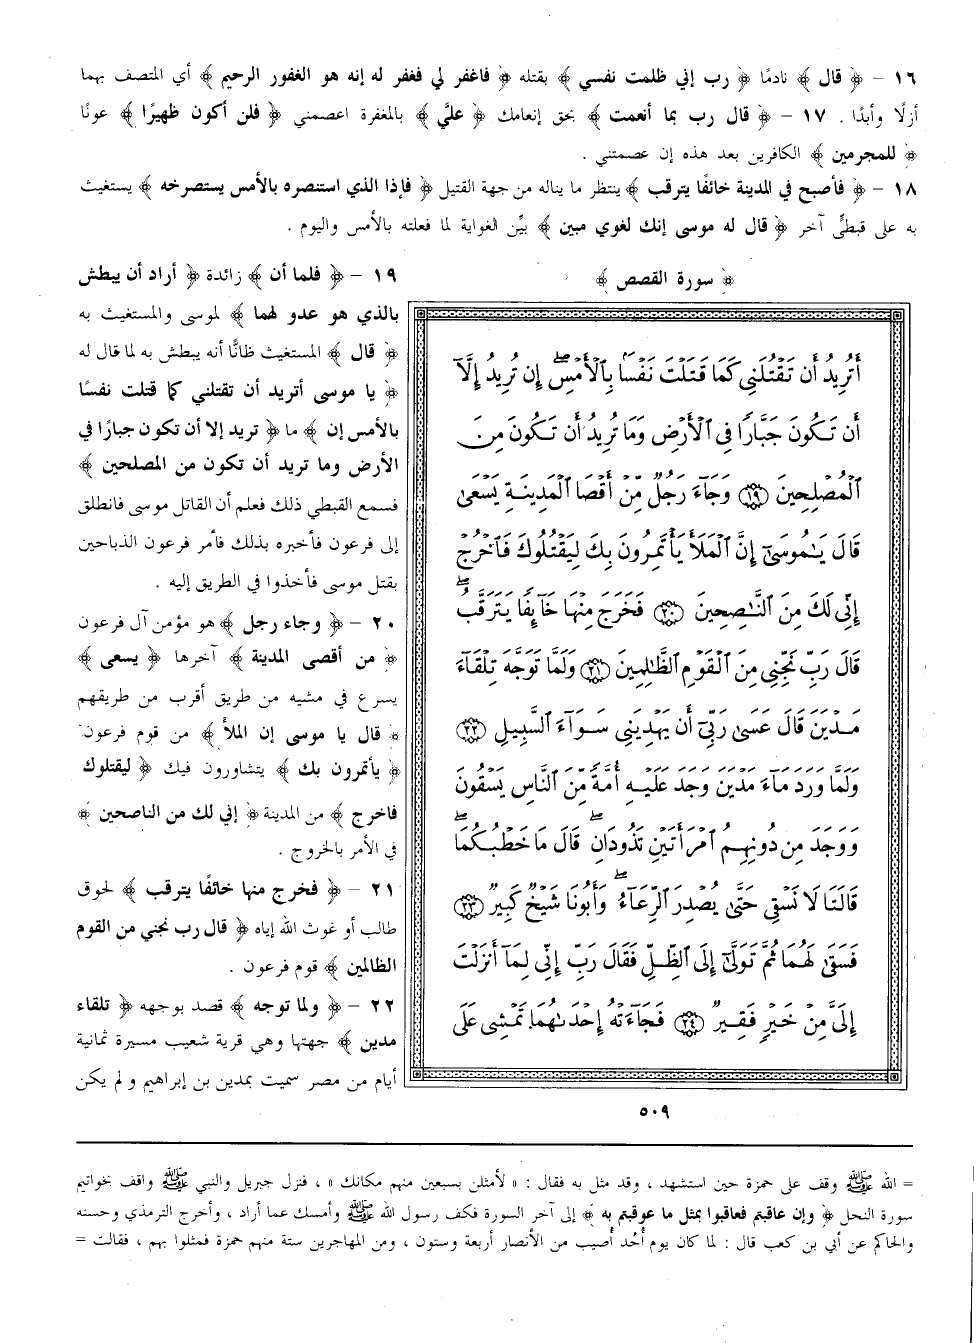 ١٦ - ﴿ قال ﴾ نادمًا ﴿ رب إني ظلمت نفسي ﴾ بقتله ﴿ فاغفر لي فغفر له إنه هو الغفور الرحيم ﴾ أي المتصف بهما
أزلًا وأبدًا . ١٧ - ﴿ قال رب بما أنعمت ﴾ بحق إنعامك ﴿ عليَّ ﴾ بالمغفرة اعصمني ﴿ فلن أكون ظهيرًا ﴾ عونًا
﴿ للمجرمين ﴾ الكافرين بعد هذه إن عصمتني .
١٨ - ﴿ فأصبح في المدينة خائفًا يترقب ﴾ ينتظر ما يناله من جهة القتيل ﴿ فإذا الذي استنصره بالأمس يستصرخه ﴾ يستغيث
به على قبطيٍّ آخر ﴿ قال له موسى إنك لغوي مبين ﴾ بيِّن الغواية لما فعلته بالأمس واليوم .
﴿ سورة القصص ﴾
أَتُرِيدُ أَن تَقْتُلَنِي كَمَا قَتَلْتَ نَفْسًا بِالْأَمْسِ إِن تُرِيدُ إِلَّا
أَن تَكُونَ جَبَّارًا فِي الْأَرْضِ وَمَا تُرِيدُ أَن تَكُونَ مِنَ
الْمُصْلِحِينَ ﴿١٩﴾ وَجَاءَ رَجُلٌ مِّنْ أَقْصَا الْمَدِينَةِ يَسْعَىٰ
قَالَ يَٰمُوسَىٰ إِنَّ الْمَلَأَ يَأْتَمِرُونَ بِكَ لِيَقْتُلُوكَ فَاخْرُجْ
إِنِّي لَكَ مِنَ النَّٰصِحِينَ ﴿٢٠﴾ فَخَرَجَ مِنْهَا خَائِفًا يَتَرَقَّبُ
قَالَ رَبِّ نَجِّنِي مِنَ الْقَوْمِ الظَّٰلِمِينَ ﴿٢١﴾ وَلَمَّا تَوَجَّهَ تِلْقَاءَ
مَدْيَنَ قَالَ عَسَىٰ رَبِّي أَن يَهْدِيَنِي سَوَاءَ السَّبِيلِ ﴿٢٢﴾
وَلَمَّا وَرَدَ مَاءَ مَدْيَنَ وَجَدَ عَلَيْهِ أُمَّةً مِّنَ النَّاسِ يَسْقُونَ
وَوَجَدَ مِن دُونِهِمُ امْرَأَتَيْنِ تَذُودَانِ قَالَ مَا خَطْبُكُمَا
قَالَتَا لَا نَسْقِي حَتَّىٰ يُصْدِرَ الرِّعَاءُ وَأَبُونَا شَيْخٌ كَبِيرٌ ﴿٢٣﴾
فَسَقَىٰ لَهُمَا ثُمَّ تَوَلَّىٰ إِلَى الظِّلِّ فَقَالَ رَبِّ إِنِّي لِمَا أَنزَلْتَ
إِلَيَّ مِنْ خَيْرٍ فَقِيرٌ ﴿٢٤﴾ فَجَاءَتْهُ إِحْدَىٰهُمَا تَمْشِي عَلَى
١٩ - ﴿ فلما أن ﴾ زائدة ﴿ أراد أن يبطش
بالذي هو عدو لهما ﴾ لموسى والمستغيث به
﴿ قال ﴾ المستغيث ظانًّا أنه يبطش به لما قال له
﴿ يا موسى أتريد أن تقتلني كما قتلت نفسًا
بالأمس إن ﴾ ما ﴿ تريد إلا أن تكون جبارًا في
الأرض وما تريد أن تكون من المصلحين ﴾
فسمع القبطي ذلك فعلم أن القاتل موسى فانطلق
إلى فرعون فأخبره بذلك فأمر فرعون الذباحين
بقتل موسى فأخذوا في الطريق إليه .
٢٠ - ﴿ وجاء رجل ﴾ هو مؤمن آل فرعون
﴿ من أقصى المدينة ﴾ آخرها ﴿ يسعى ﴾
يسرع في مشيه من طريق أقرب من طريقهم
﴿ قال يا موسى إن الملأ ﴾ من قوم فرعون
﴿ يأتمرون بك ﴾ يتشاورون فيك ﴿ ليقتلوك
فاخرج ﴾ من المدينة ﴿ إني لك من الناصحين ﴾
في الأمر بالخروج .
٢١ - ﴿ فخرج منها خائفًا يترقب ﴾ لحوق
طالب أو غوث الله إياه ﴿ قال رب نجني من القوم
الظالمين ﴾ قوم فرعون .
٢٢ - ﴿ ولما توجه ﴾ قصد بوجهه ﴿ تلقاء
مدين ﴾ جهتها وهي قرية شعيب مسيرة ثمانية
أيام من مصر سميت بمدين بن إبراهيم ولم يكن
٥٠٩
= الله ﷺ وقف على حمزة حين استشهد ، وقد مثل به فقال : « لأمثلن بسبعين منهم مكانك » ، فنزل جبريل والنبي ﷺ واقف بخواتيم
سورة النحل ﴿ وإن عاقبتم فعاقبوا بمثل ما عوقبتم به ﴾ إلى آخر السورة فكف رسول الله ﷺ وأمسك عما أراد ، وأخرج الترمذي وحسنه
والحاكم عن أبي بن كعب قال : لما كان يوم أُحد أُصيب من الأنصار أربعة وستون ، ومن المهاجرين ستة منهم حمزة فمثلوا بهم ، فقالت =